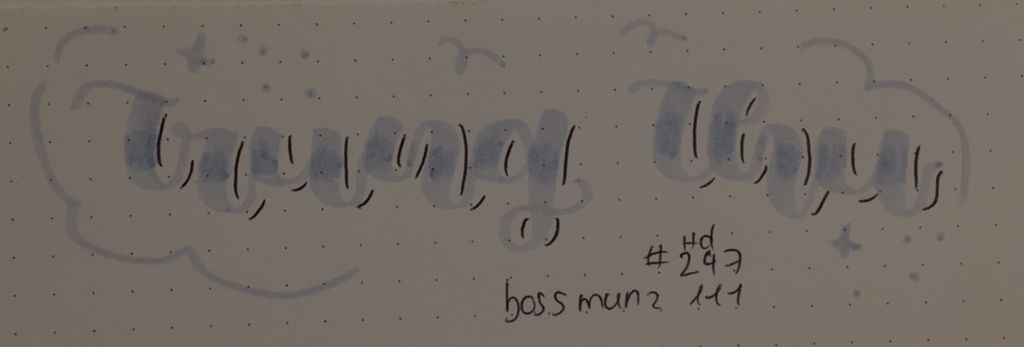 trung thu
Hd
# 297
boss mun2 111